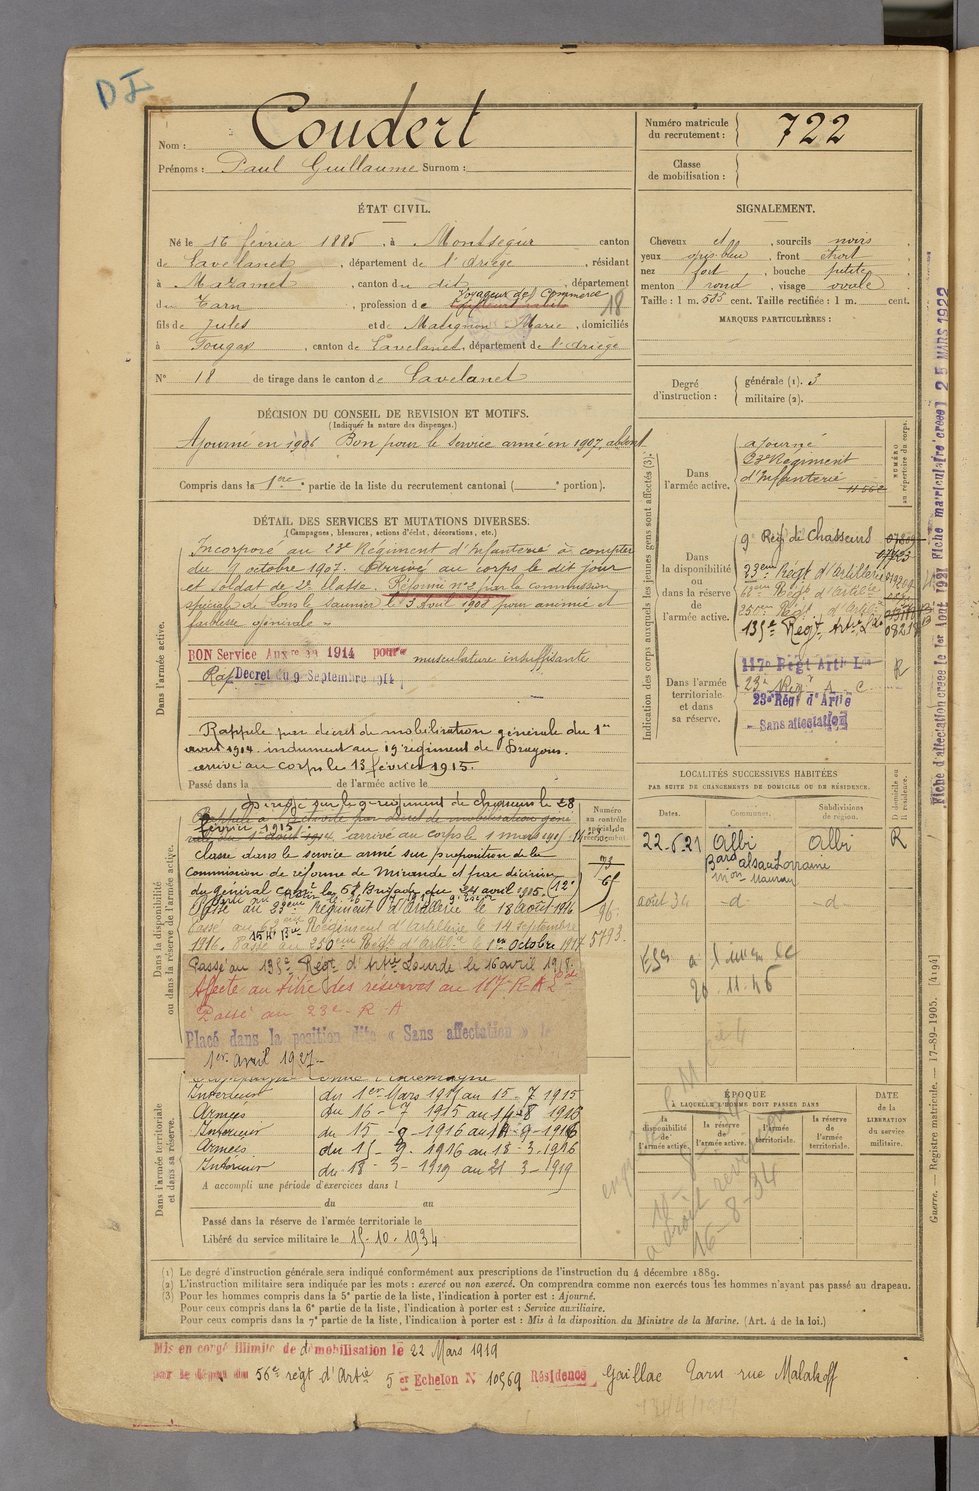 DI
Nom : Coudert
Prénoms : Paul Guillaume Surnom :
Numéro matricule du recrutement : 722
Classe de mobilisation :
ÉTAT CIVIL.
Né le 16 février 1885, à Montségur canton
de Lavelanet, département de l'Ariège, résidant
à Mazamet, canton du dit, département
du Tarn, profession de Voyageur de Commerce
18
fils de Jules et de Malignon Marie, domiciliés
à Fougax, canton de Lavelanet, département de l'Ariège
N° 18 de tirage dans le canton de Lavelanet
SIGNALEMENT.
Cheveux, sourcils noirs
yeux gris bleu, front étroit
nez fort, bouche petite
menton rond, visage ovale
Taille : 1 m. 585 cent. Taille rectifiée : 1 m. cent.
MARQUES PARTICULIÈRES :
Degré d'instruction : générale (1). 3
militaire (2).
DÉCISION DU CONSEIL DE REVISION ET MOTIFS.
(Indiquer la nature des dispenses.)
Ajourné en 1906 Bon pour le service armé en 1907, absent
Compris dans la 1ère partie de la liste du recrutement cantonal ( e portion).
DÉTAIL DES SERVICES ET MUTATIONS DIVERSES.
(Campagnes, blessures, actions d'éclat, décorations, etc.)
Dans l'armée active.
Incorporé au 23e Régiment d'Infanterie à compter
du 9 octobre 1907. Arrivé au corps le dit jour
et soldat de 2e classe. Réformé n°2 par la commission
spéciale de Lons le Saunier le 3 Avril 1908 pour anémie et
faiblesse générale
BON Service Auxre en 1914 pour musculature insuffisante
Rap Décret du 9 Septembre 1914
Rappelé par décret de mobilisation générale du 1er
août 1914. indument au 19 régiment de Dragons.
arrivé au corps le 13 février 1915.
Passé dans la de l'armée active le
Dans la disponibilité ou dans la réserve de l'armée active.
Dirigé sur le 9 régiment de chasseurs le 28
février 1915
Rappelé à l'activité par décret de mobilisation géné
rale du 1 août 1914 arrivé au corps le 1 mars 1915
Classé dans le service armé sur proposition de la
Commission de réforme de Mirande et par décision
du général Comt la 68e Brigade du 24 avril 1915 (12°)
Passé au 23eme Régiment d'Artillerie le 18 août 1916
Passé au Régiment d'Artillerie le 14 septembre
1916. Passé au 250eme Régt d'Artillie le 1er Octobre 1917
Passé au 135e Régt d'Artie Lourde le 16 avril 1918
Affecté au titre des réserves au 117e R.A.L
Passé au 23e R.A
Placé dans la position dite « Sans affectation » le
1er avril 1927
Numéro au contrôle spécial du recrutement.
96
5793
Dans l'armée territoriale et dans sa réserve.
Intérieur du 1er Mars 1915 au 15-7 1915
Armées du 16-7 1915 au 14-8 1916
Intérieur du 15-9-1916 au 14-9-1916
Armées du 15-9-1916 au 18-3-1916
Intérieur du 18-3-1919 au 21-3-1919
A accompli une période d'exercices dans l
du au
Passé dans la réserve de l'armée territoriale le
Libéré du service militaire le 15-10-1934
Indication des corps auxquels les jeunes gens sont affectés (3).
NUMÉRO au répertoire du corps.
Dans l'armée active.
ajourné
23e Régiment
d'Infanterie
Dans la disponibilité ou dans la réserve de l'armée active.
9e Régt de Chasseurs
23eme Régt d'Artillerie
250eme Régt d'Artillie
135e Régt Artie Lde
Dans l'armée territoriale et dans sa réserve.
117e Régt Artie Lde R
23e Régt A. C.
23e Régt d'Artie
Sans affectation
LOCALITÉS SUCCESSIVES HABITÉES
PAR SUITE DE CHANGEMENTS DE DOMICILE OU DE RÉSIDENCE.
Dates. Communes. Subdivisions de région. D domicile ou R résidence.
22-6-21 Albi Albi R
Bard Alsace Lorraine
Mon
août 34 -d- -d-
20-11-46
ÉPOQUE
À LAQUELLE L'HOMME DOIT PASSER DANS
la disponibilité de l'armée active. la réserve de l'armée active. l'armée territoriale. la réserve de l'armée territoriale.
DATE de la LIBÉRATION du service militaire.
16-8-34
(1) Le degré d'instruction générale sera indiqué conformément aux prescriptions de l'instruction du 4 décembre 1889.
(2) L'instruction militaire sera indiquée par les mots : exercé ou non exercé. On comprendra comme non exercés tous les hommes n'ayant pas passé au drapeau.
(3) Pour les hommes compris dans la 5e partie de la liste, l'indication à porter est : Ajourné.
Pour ceux compris dans la 6e partie de la liste, l'indication à porter est : Service auxiliaire.
Pour ceux compris dans la 7e partie de la liste, l'indication à porter est : Mis à la disposition du Ministre de la Marine. (Art. 4 de la loi.)
Mis en congé illimité de démobilisation le 22 Mars 1919
par le dépôt du 56e régt d'Artie 5er Echelon N° 10569 Résidence Gaillac Tarn rue Malakoff
Fiche d'affectation créée le 1er Aout 1921 Fiche matriculaire créée le 25 MARS 1922
Guerre. — Registre matricule. — 17-89-1905. [4194]